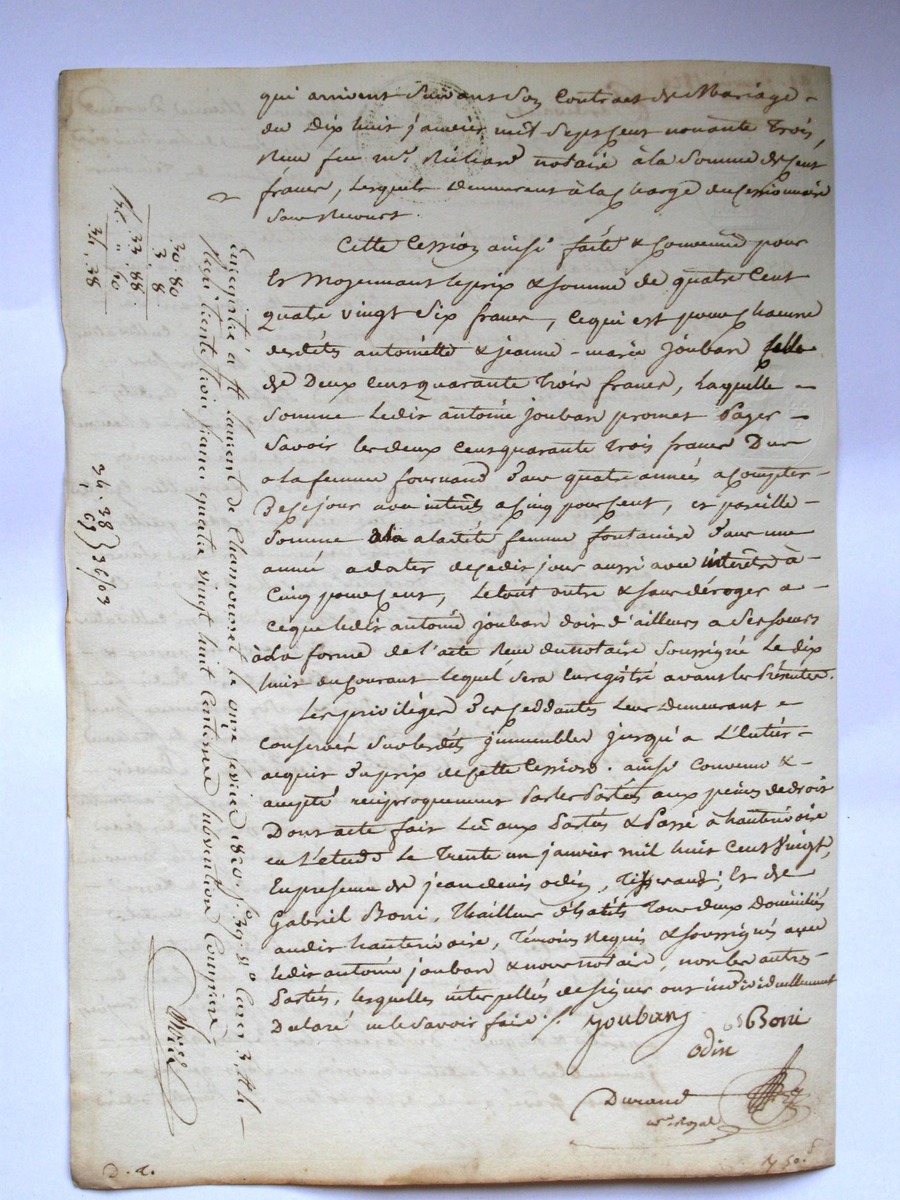 qui arrivent suivant son Contract de Mariage -
du Dix huit janvier mil Sept Cent nonante Trois,
Reçu feu Mr. Richard notaire à la Somme de Cent
francs, lesquels demeurant à la Charge du Cessionnaire
Sans Recourt.
Cette Cession ainsi faite & Convenue pour
& Moyennant le prix & somme de quatre Cent
quatre vingt Six francs, Ce qui est pour Chacune
desdites antoinette & jeanne-marie joubard celle
de Deux Cens quarante Trois francs, Laquelle -
Somme Ledit antoine joubard promet Payer -
Savoir les deux Cens quarante Trois francs Dus
a la femme fournand Dans quatre années a Compter
De Ce jour avec intérêts a Cinq pour Cent, et pareille -
Somme a la dite femme fontanière Dans une
année a dater de Cedit jour aussi avec intérêts à -
Cinq pour Cent, Le tout outre & sans déroger a -
Ce que ledit antoine joubard doit d'ailleurs a Ses soeurs
à la forme de l'acte Reçu du notaire Soussigné Le dix
huit du Courant lequel Sera Enregistré avant les Présentes.
Les privilèges des Ceddantes Leur demeurant -
Conservés Sur lesdits jmmeubles jusqu'a L'entier -
acquit Du prix de Cette Cession. ainsi Convenu & -
accepté réciproquement Par les Parties aux peines de droit
Dont acte fait Lu aux Parties & Passé à hauterivoire
en L'etude Le Trente un janvier mil huit Cent Vingt,
En présence de jean denis odin, Tisserand, Et de
Gabriel Boni, Thailleur d'habits Tous deux Domiciliés
audit hauterivoire, Témoins Requis & soussignés avec
Ledit antoine joubard & nous notaire, non les autres
Parties, lesquelles interpellées de signer ont individuellement
Declaré ne le Savoir faire.
Joubard
Boni
odin
Durand
nre. Royal
Enregistré à St Laurent de Chamousset le onze février 1820. fo. 39 Vo. Cases 3. 4 &
Reçu trente trois francs quatre vingt huit Centimes Subvention Comprise
30.80
3.8
33.88
" 60
34.38
34.38
1 69
D. d.